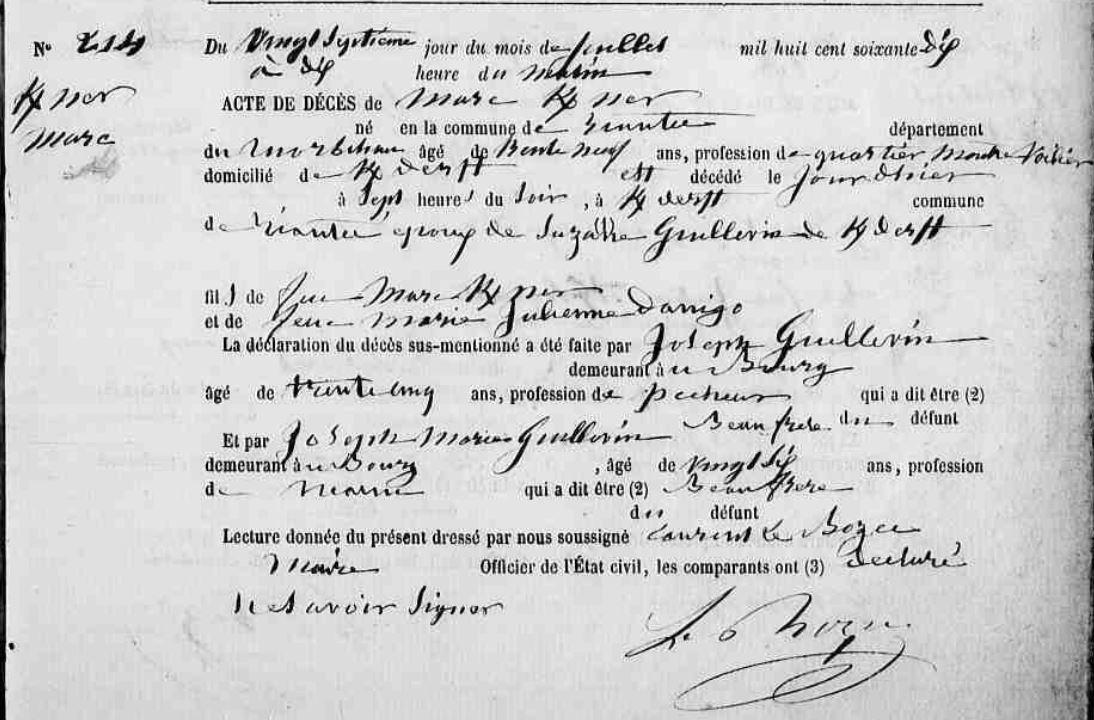 N° 214 Du Vingt Septieme jour du mois de Juillet mil huit cent soixante Dix
à dix heure du matin
Kner
Marc
ACTE DE DÉCÈS de Marc Kner
né en la commune de Riantec département
du Morbihan âgé de trente neuf ans, profession de quartier Maitre Voilier
domicilié de K derff est décédé le jour d'hier
à Sept heures du Soir, à K derff commune
de Riantec époux de Suzanne Guillevin de K derff
fils de feu Marc Kner
et de feue Marie Julienne Danigo
La déclaration du décès sus-mentionné a été faite par Joseph Guillevin
demeurant au Bourg
âgé de trente cinq ans, profession de pecheur qui a dit être (2)
Beau frere du défunt
Et par Joseph Marie Guillevin
demeurant au Bourg, âgé de Vingt Six ans, profession
de Marin qui a dit être (2) Beau frere
du défunt
Lecture donnée du présent dressé par nous soussigné Laurent Le Bozec
Maire Officier de l'État civil, les comparants ont (3) declaré
ne Savoir Signer